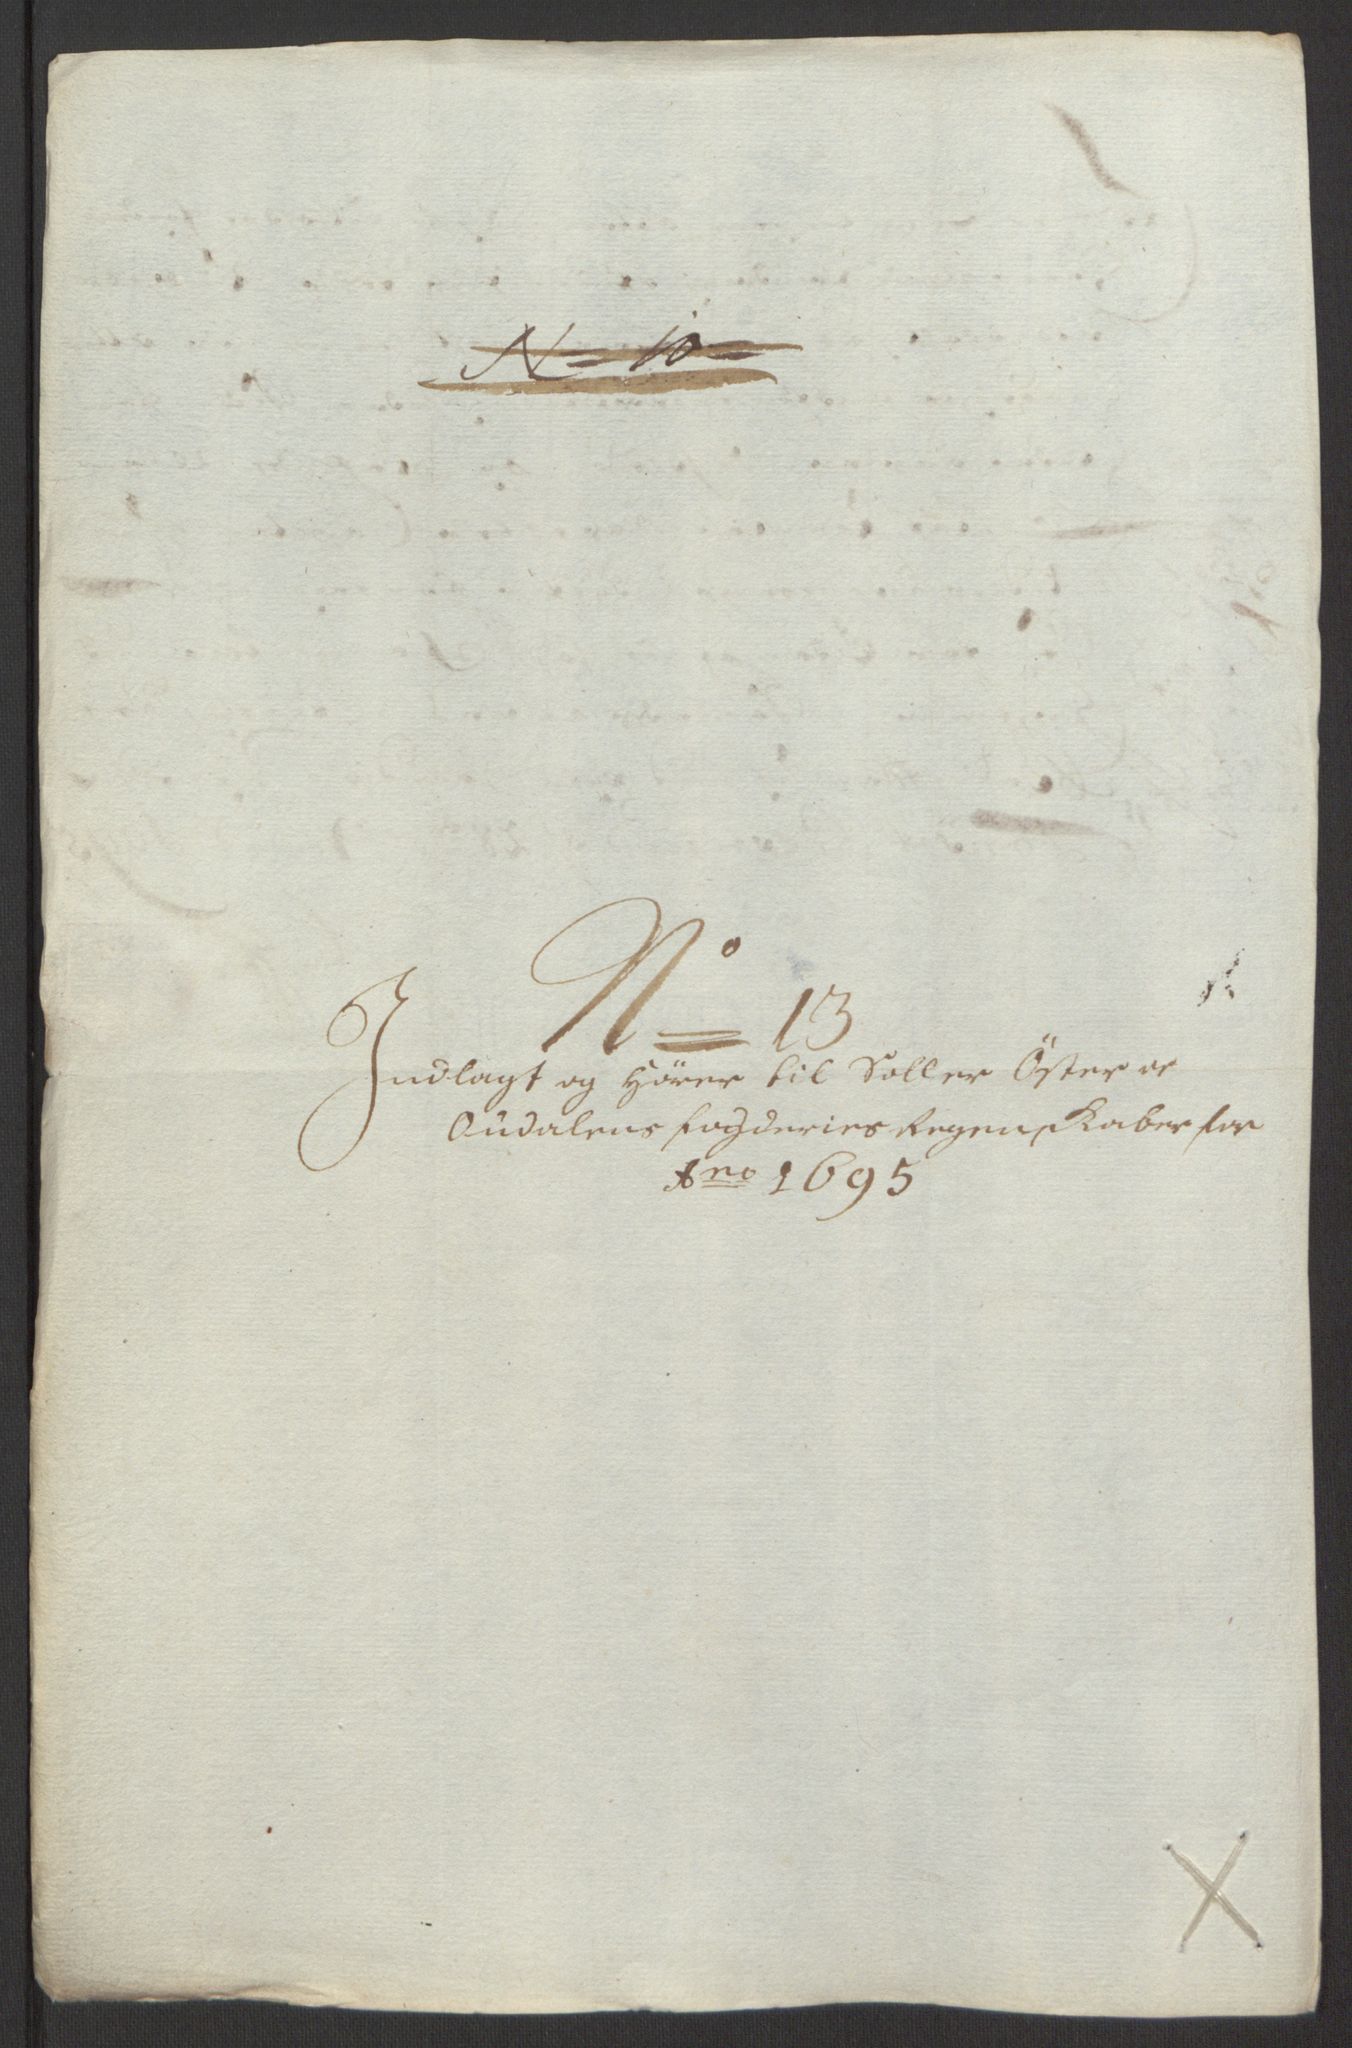 N = 10 =
No 13
Indlagt og Hörer til Soller Öster oc
Oudalens fogderies Regenskaber for
Ano 1695